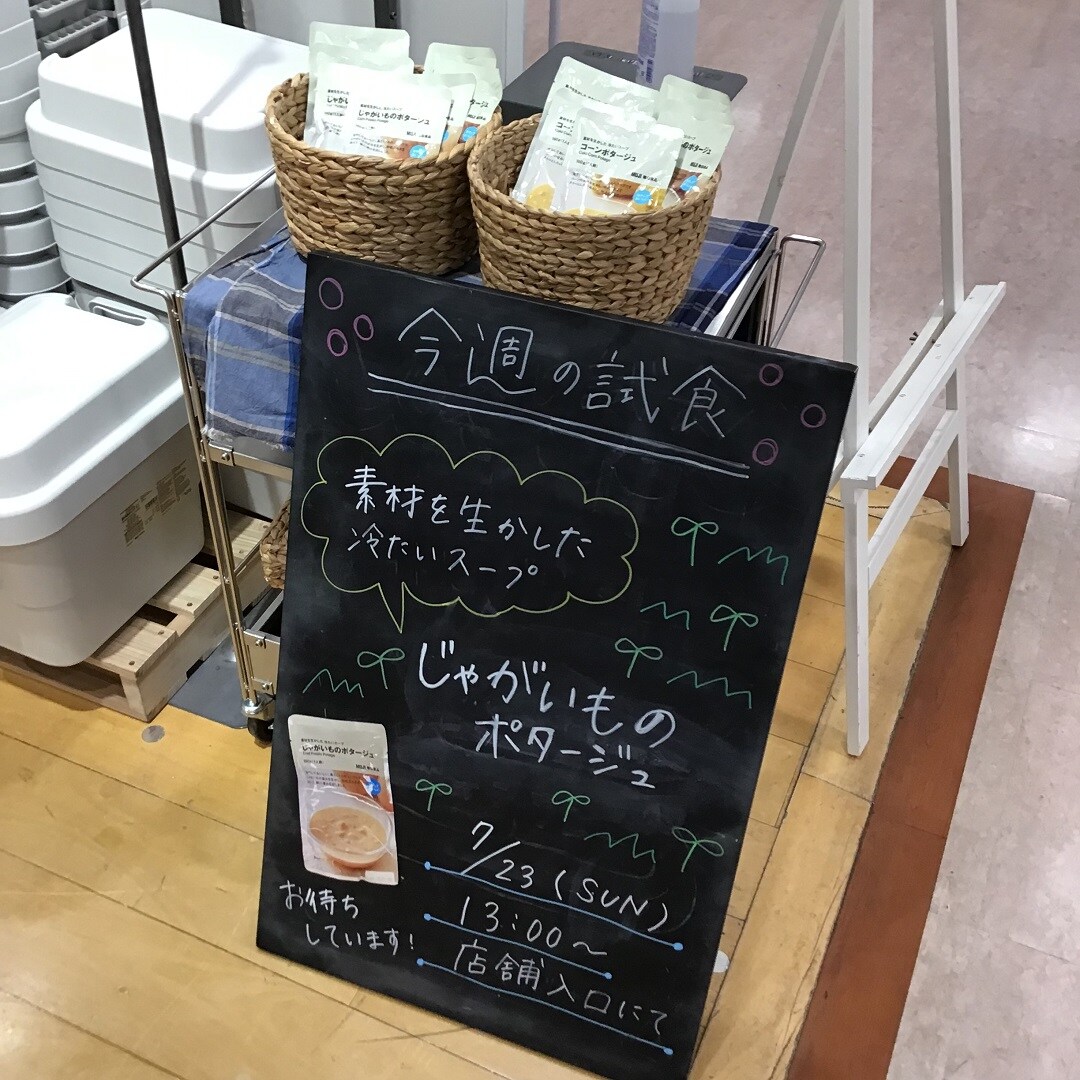 じゃがいものポタージュ
コーンポタージュ
今週の試食
素材を生かした
冷たいスープ
じゃがいもの
ポタージュ
じゃがいものポタージュ
7/23(SUN)
13:00～
店舗入口にて
お待ち
しています!